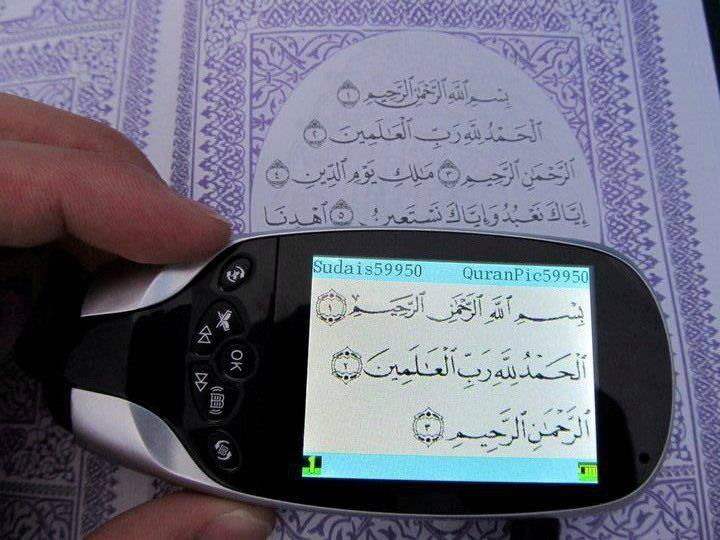 بِسْمِ ٱللَّهِ ٱلرَّحْمَٰنِ ٱلرَّحِيمِ ١
ٱلْحَمْدُ لِلَّهِ رَبِّ ٱلْعَٰلَمِينَ ٢
ٱلرَّحْمَٰنِ ٱلرَّحِيمِ ٣ مَٰلِكِ يَوْمِ ٱلدِّينِ ٤
إِيَّاكَ نَعْبُدُ وَإِيَّاكَ نَسْتَعِينُ ٥ ٱهْدِنَا
Sudais59950 QuranPic59950
بِسْمِ ٱللَّهِ ٱلرَّحْمَٰنِ ٱلرَّحِيمِ ١
ٱلْحَمْدُ لِلَّهِ رَبِّ ٱلْعَٰلَمِينَ ٢
ٱلرَّحْمَٰنِ ٱلرَّحِيمِ ٣
1
OK